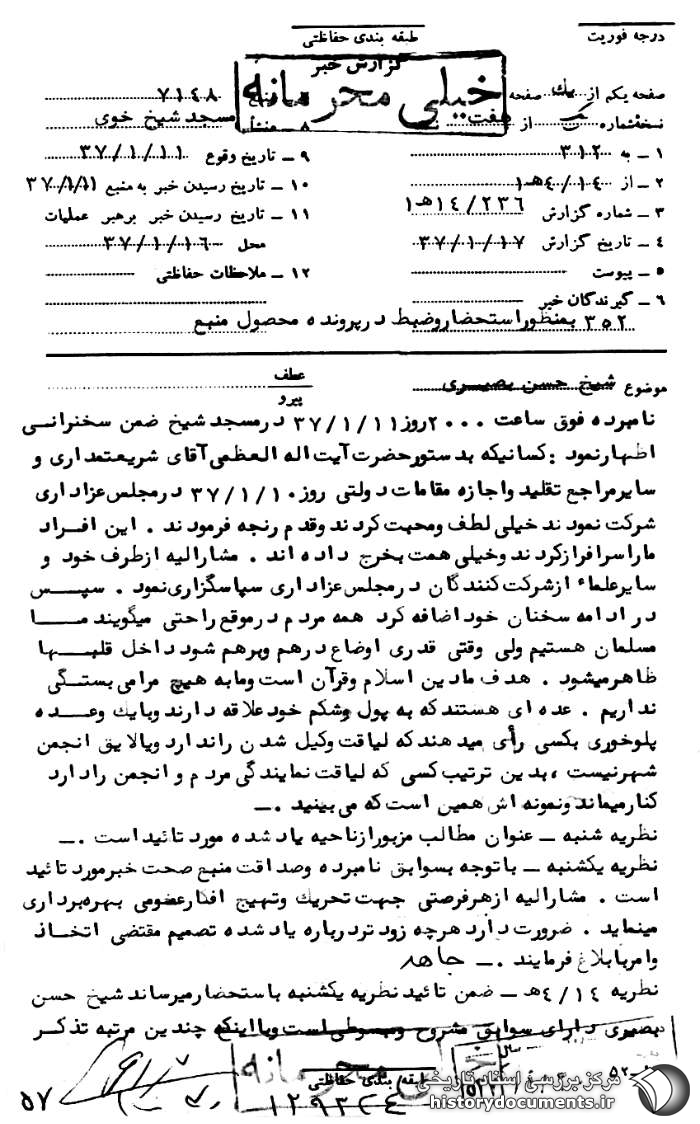 درجه فوریت
طبقه بندی حفاظتی
گزارش خبر
خیلی محرمانه
صفحه یکم از یك صفحه
۷۱۴۸
نسخهٔ شماره از هفت
۸ ـ منشأ مسجد شیخ خوی
۱ ـ به ۳۱۲
۹ ـ تاریخ وقوع ۳۷/۱/۱۱
۲ ـ از ۴/۱۴ هـ ۱
۱۰ ـ تاریخ رسیدن خبر به منبع ۳۷/۱/۱۱
۳ ـ شماره گزارش ۱۴/۲۳۶ هـ ۱
۱۱ ـ تاریخ رسیدن خبر برهبر عملیات
۴ ـ تاریخ گزارش ۳۷/۱/۱۷
محل ۳۷/۱/۱۶
۵ ـ پیوست
۱۲ ـ ملاحظات حفاظتی
۶ ـ گیرندگان خبر
۳۵۲ بمنظور استحضار و ضبط در پرونده محصول منبع
موضوع شیخ حسن بصیری
عطف
پیرو
نامبرده فوق ساعت ۲۰۰۰ روز ۳۷/۱/۱۱ در مسجد شیخ ضمن سخنرانی
اظهار نمود : کسانیکه بدستور حضرت آیت اله العظمی آقای شریعتمداری و
سایر مراجع تقلید و اجازه مقامات دولتی روز ۳۷/۱/۱۰ در مجلس عزاداری
شرکت نمودند خیلی لطف و محبت کردند و قدم رنجه فرمودند . این افراد
ما را سرافراز کردند و خیلی همت بخرج داده اند . مشارالیه از طرف خود و
سایر علماء از شرکت کنندگان در مجلس عزاداری سپاسگزاری نمود . سپس
در ادامه سخنان خود اضافه کرد همه مردم در موقع راحتی میگویند ما
مسلمان هستیم ولی وقتی قدری اوضاع درهم و برهم شود داخل قلبها
ظاهر میشود . هدف ما دین اسلام و قرآن است و ما به هیچ مرامی بستگی
نداریم . عده ای هستند که به پول و شکم خود علاقه دارند و با یك وعده
پلوخوری بکسی رأی میدهند که لیاقت وکیل شدن را ندارد و یا لایق انجمن
شهر نیست ، بدین ترتیب کسی که لیاقت نمایندگی مردم و انجمن را دارد
کنار میماند و نمونه اش همین است که می بینید . ــ
نظریه شنبه ــ عنوان مطالب مزبور از ناحیه یاد شده مورد تائید است . ــ
نظریه یکشنبه ــ با توجه بسوابق نامبرده و صداقت منبع صحت خبر مورد تائید
است . مشارالیه از هر فرصتی جهت تحریك و تهیج افکار عمومی بهره برداری
مینماید . ضرورت دارد هر چه زودتر درباره یاد شده تصمیم مقتضی اتخاذ
و امر با بلاغ فرمایند . ــ جاهد
نظریه ۴/۱۴ هـ ــ ضمن تائید نظریه یکشنبه با ستحضار میرساند شیخ حسن
بصیری دارای سوابق مشروح و مبسوطی است و با اینکه چندین مرتبه تذکر
طبقه بندی حفاظتی
۱۲۹۳۲۴
۵۷
مرکز بررسی اسناد تاریخی
historydocuments.ir